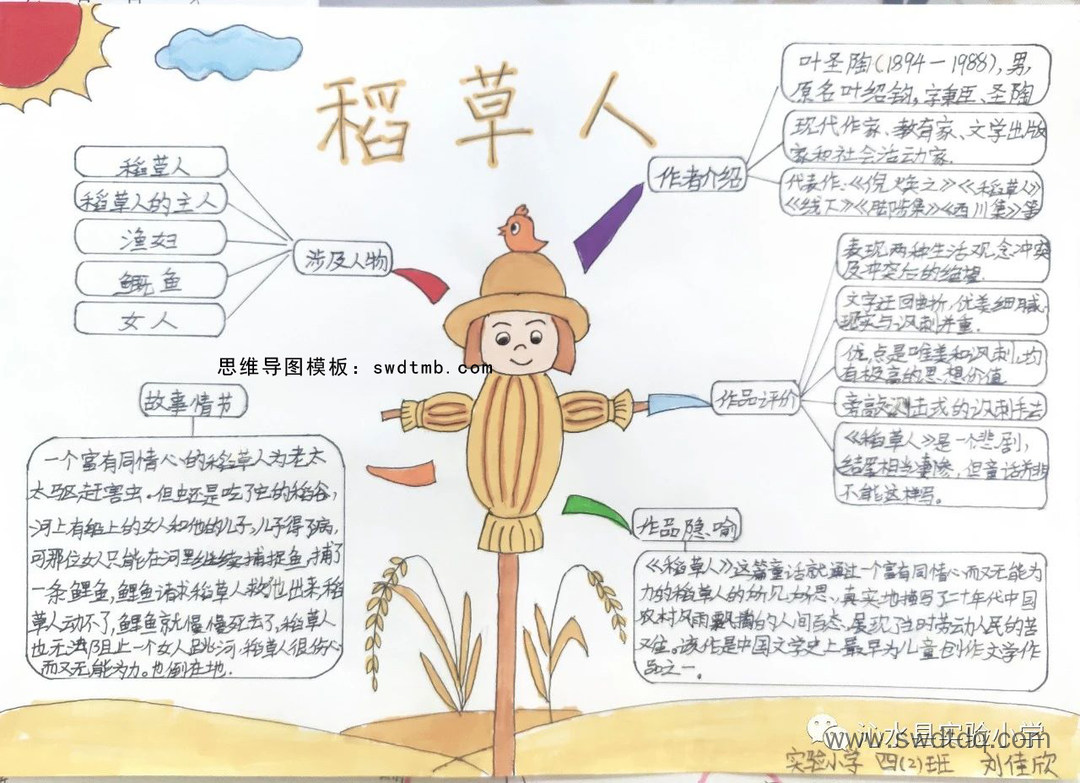 稻草人
叶圣陶(1894-1988),男,
原名叶绍钧,字秉臣、圣陶
现代作家、教育家、文学出版
家和社会活动家.
作者介绍
代表作:《倪焕之》《稻草人》
《线下》《脚阶集》《西川集》等
稻草人
稻草人的主人
渔妇
鲫鱼
女人
涉及人物
思维导图模板:swdtmb.com
表现两种生活观念冲突
及冲突后的绝望.
文字迂回曲折,优美细腻.
现实与讽刺并重.
优点是唯美和讽刺,均
有极高的思想价值
旁敲测击式的讽刺手法
《稻草人》是一个悲剧,
结果相当凄惨,但童话并非
不能这样写。
作品评价
故事情节
一个富有同情心的稻草人为老太
太驱赶害虫.但虫还是吃了她的稻谷,
河上有船上的女人和他的儿子,儿子得了病,
可那位女人只能在河里继续捕捉鱼,捕了
一条鲤鱼,鲤鱼请求稻草人救他出来,稻
草人动不了,鲤鱼就慢慢死去了,稻草人
也无法阻止一个女人跳河,稻草人很伤心
而又无能为力。也倒在地.
作品隐喻
《稻草人》这篇童话就通过一个富有同情心而又无能为
力的稻草人的所见所思、真实地描写了二十年代中国
农村风雨飘摇的人间百态,展现了当时劳动人民的苦
难。该作是中国文学史上最早为儿童创作文学作
品之一.
沁水县实验小学
www.swdtdq.com
实验小学 四(2)班 刘佳欣